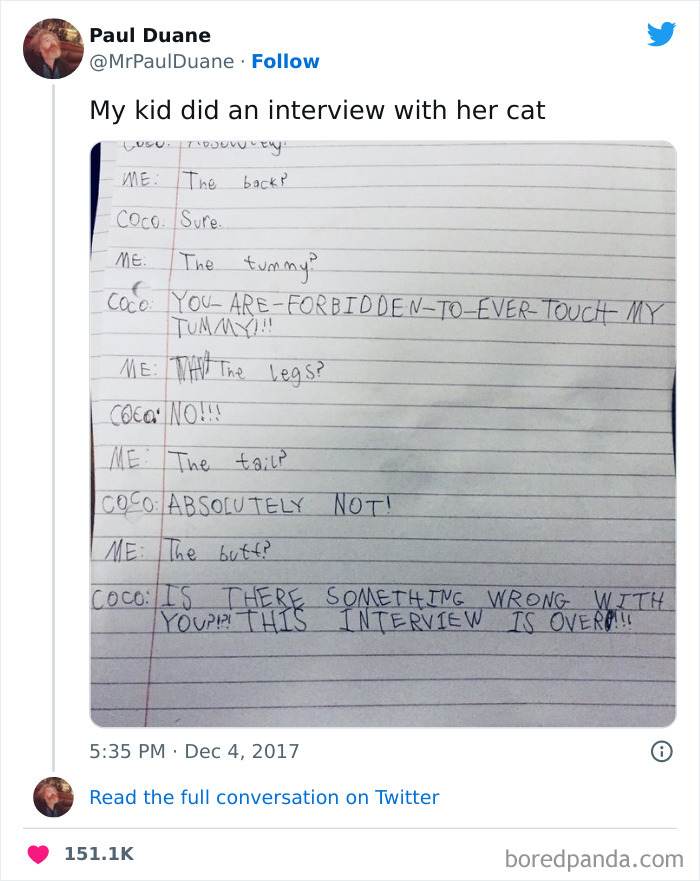 Paul Duane
@MrPaulDuane · Follow
My kid did an interview with her cat
COCO: Absolutely!
ME: The back?
COCO. Sure.
ME: The tummy?
COCO: YOU-ARE-FORBIDDEN-TO-EVER-TOUCH-MY
TUMMY!!!
ME: The legs?
COCO: NO!!!
ME: The tail?
COCO: ABSOLUTELY NOT!
ME: The butt?
COCO: IS THERE SOMETHING WRONG WITH
YOU?!?! THIS INTERVIEW IS OVER!!!!
5:35 PM · Dec 4, 2017
Read the full conversation on Twitter
151.1K
boredpanda.com